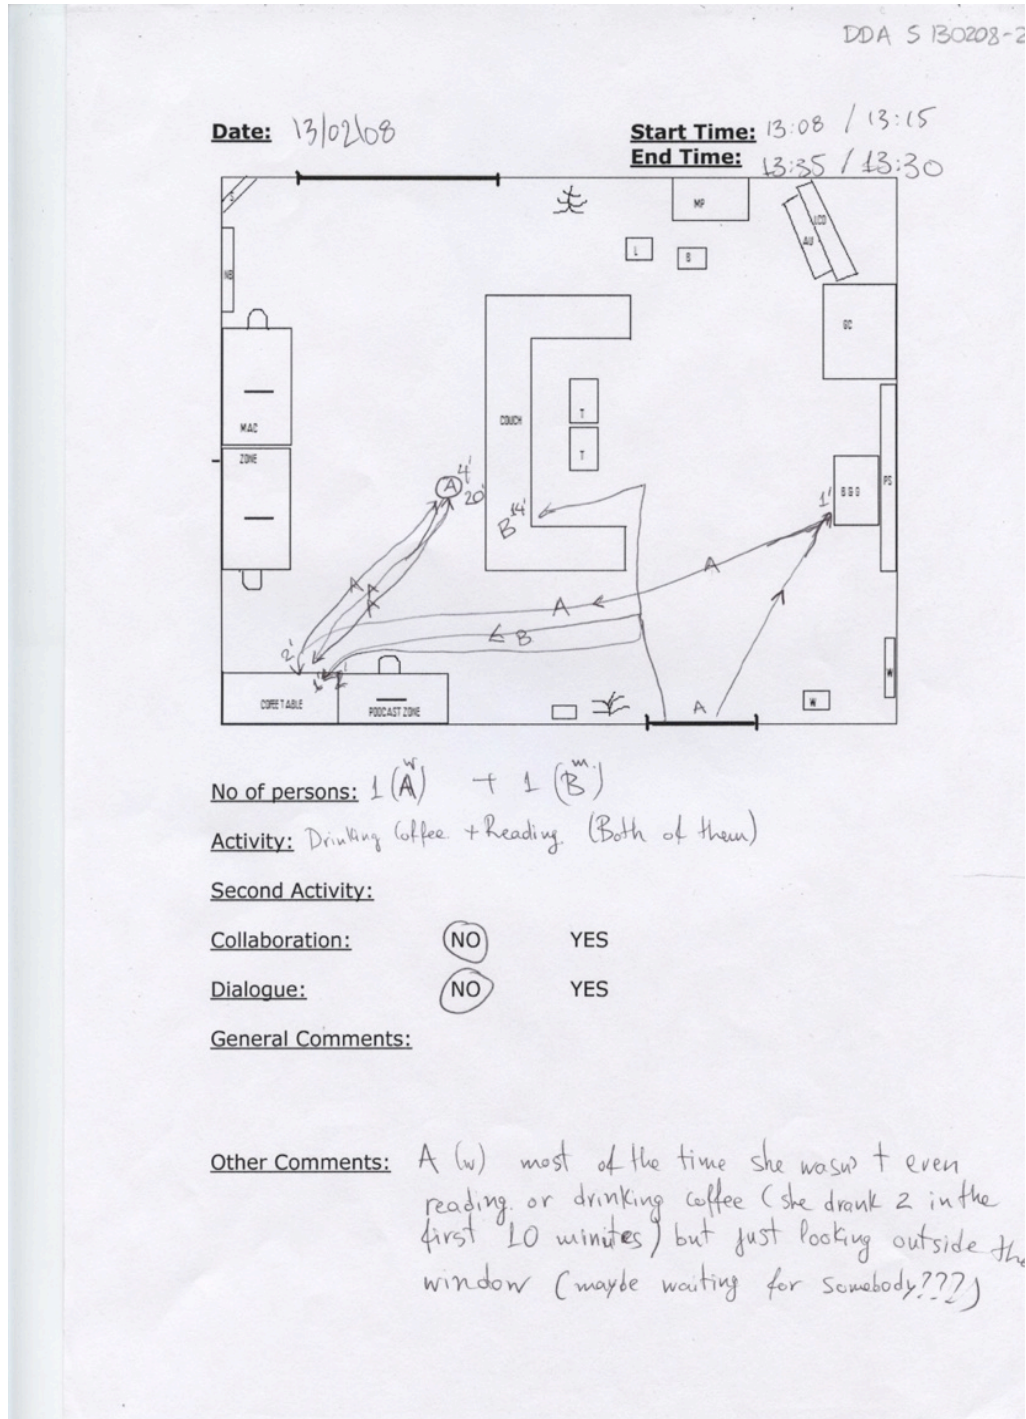 DDA S 130208-2
Date: 13/02/08
Start Time: 13:08 / 13:15
End Time: 13:35 / 13:30
MP
LCD
AU
L
B
NB
GC
MAC
ZONE
COUCH
T
T
A 4'
20'
B 14'
1'
BGD
PS
A
A
A
A
A
A
B
2'
1' 2'
COFEE TABLE
PODCAST ZONE
A
W
W
No of persons: 1 (A) w + 1 (B) m.
Activity: Drinking Coffee + Reading (Both of them)
Second Activity:
Collaboration: NO YES
Dialogue: NO YES
General Comments:
Other Comments: A (w) most of the time she wasn't even
reading or drinking coffee (she drank 2 in the
first 10 minutes) but just looking outside the
window (maybe waiting for somebody???)